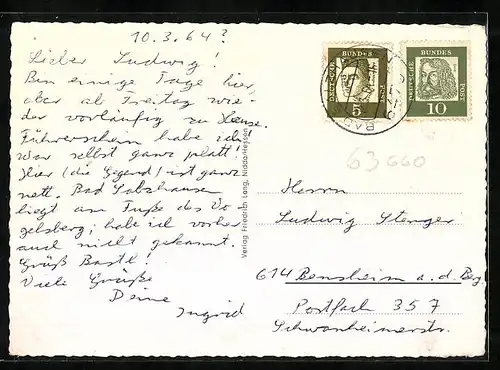 10.3.64?
Lieber Ludwig!
Bin einige Tage hier,
aber ab Freitag wie-
der vorläufig zu Hause.
Führerschein habe ich
war selbst ganz platt!
Hier (die Gegend) ist ganz
nett. Bad Salzhausen
liegt am Fuße des Vo-
gelsberg; hab ich vorher
auch nicht gekannt.
Grüß Bastl!
Viele Grüße
Deine
Ingrid
Verlag Friedrich Lang, Nidda/Hessen
DEUTSCHE BUNDES POST
5
DEUTSCHE BUNDES POST
10
63660
Herrn
Ludwig Stenger
614 Bensheim a. d. Berg.
Postfach 357
Schwanheimerstr.